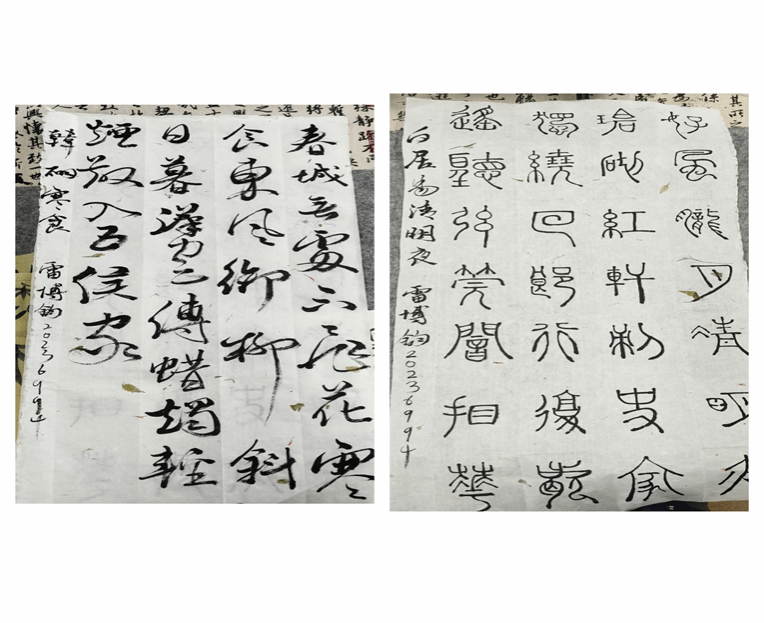 春城无處不飛花寒
食東風御柳斜
日暮漢宮傳蜡燭輕
煙散入五侯家
韓翃寒食 雷博鈞2023699
好風朧月清明夜
碧砌紅軒刺史家
獨繞回郎行復歇
遙聽弦筦闇看華
白居易清明夜 雷博鈞2023699